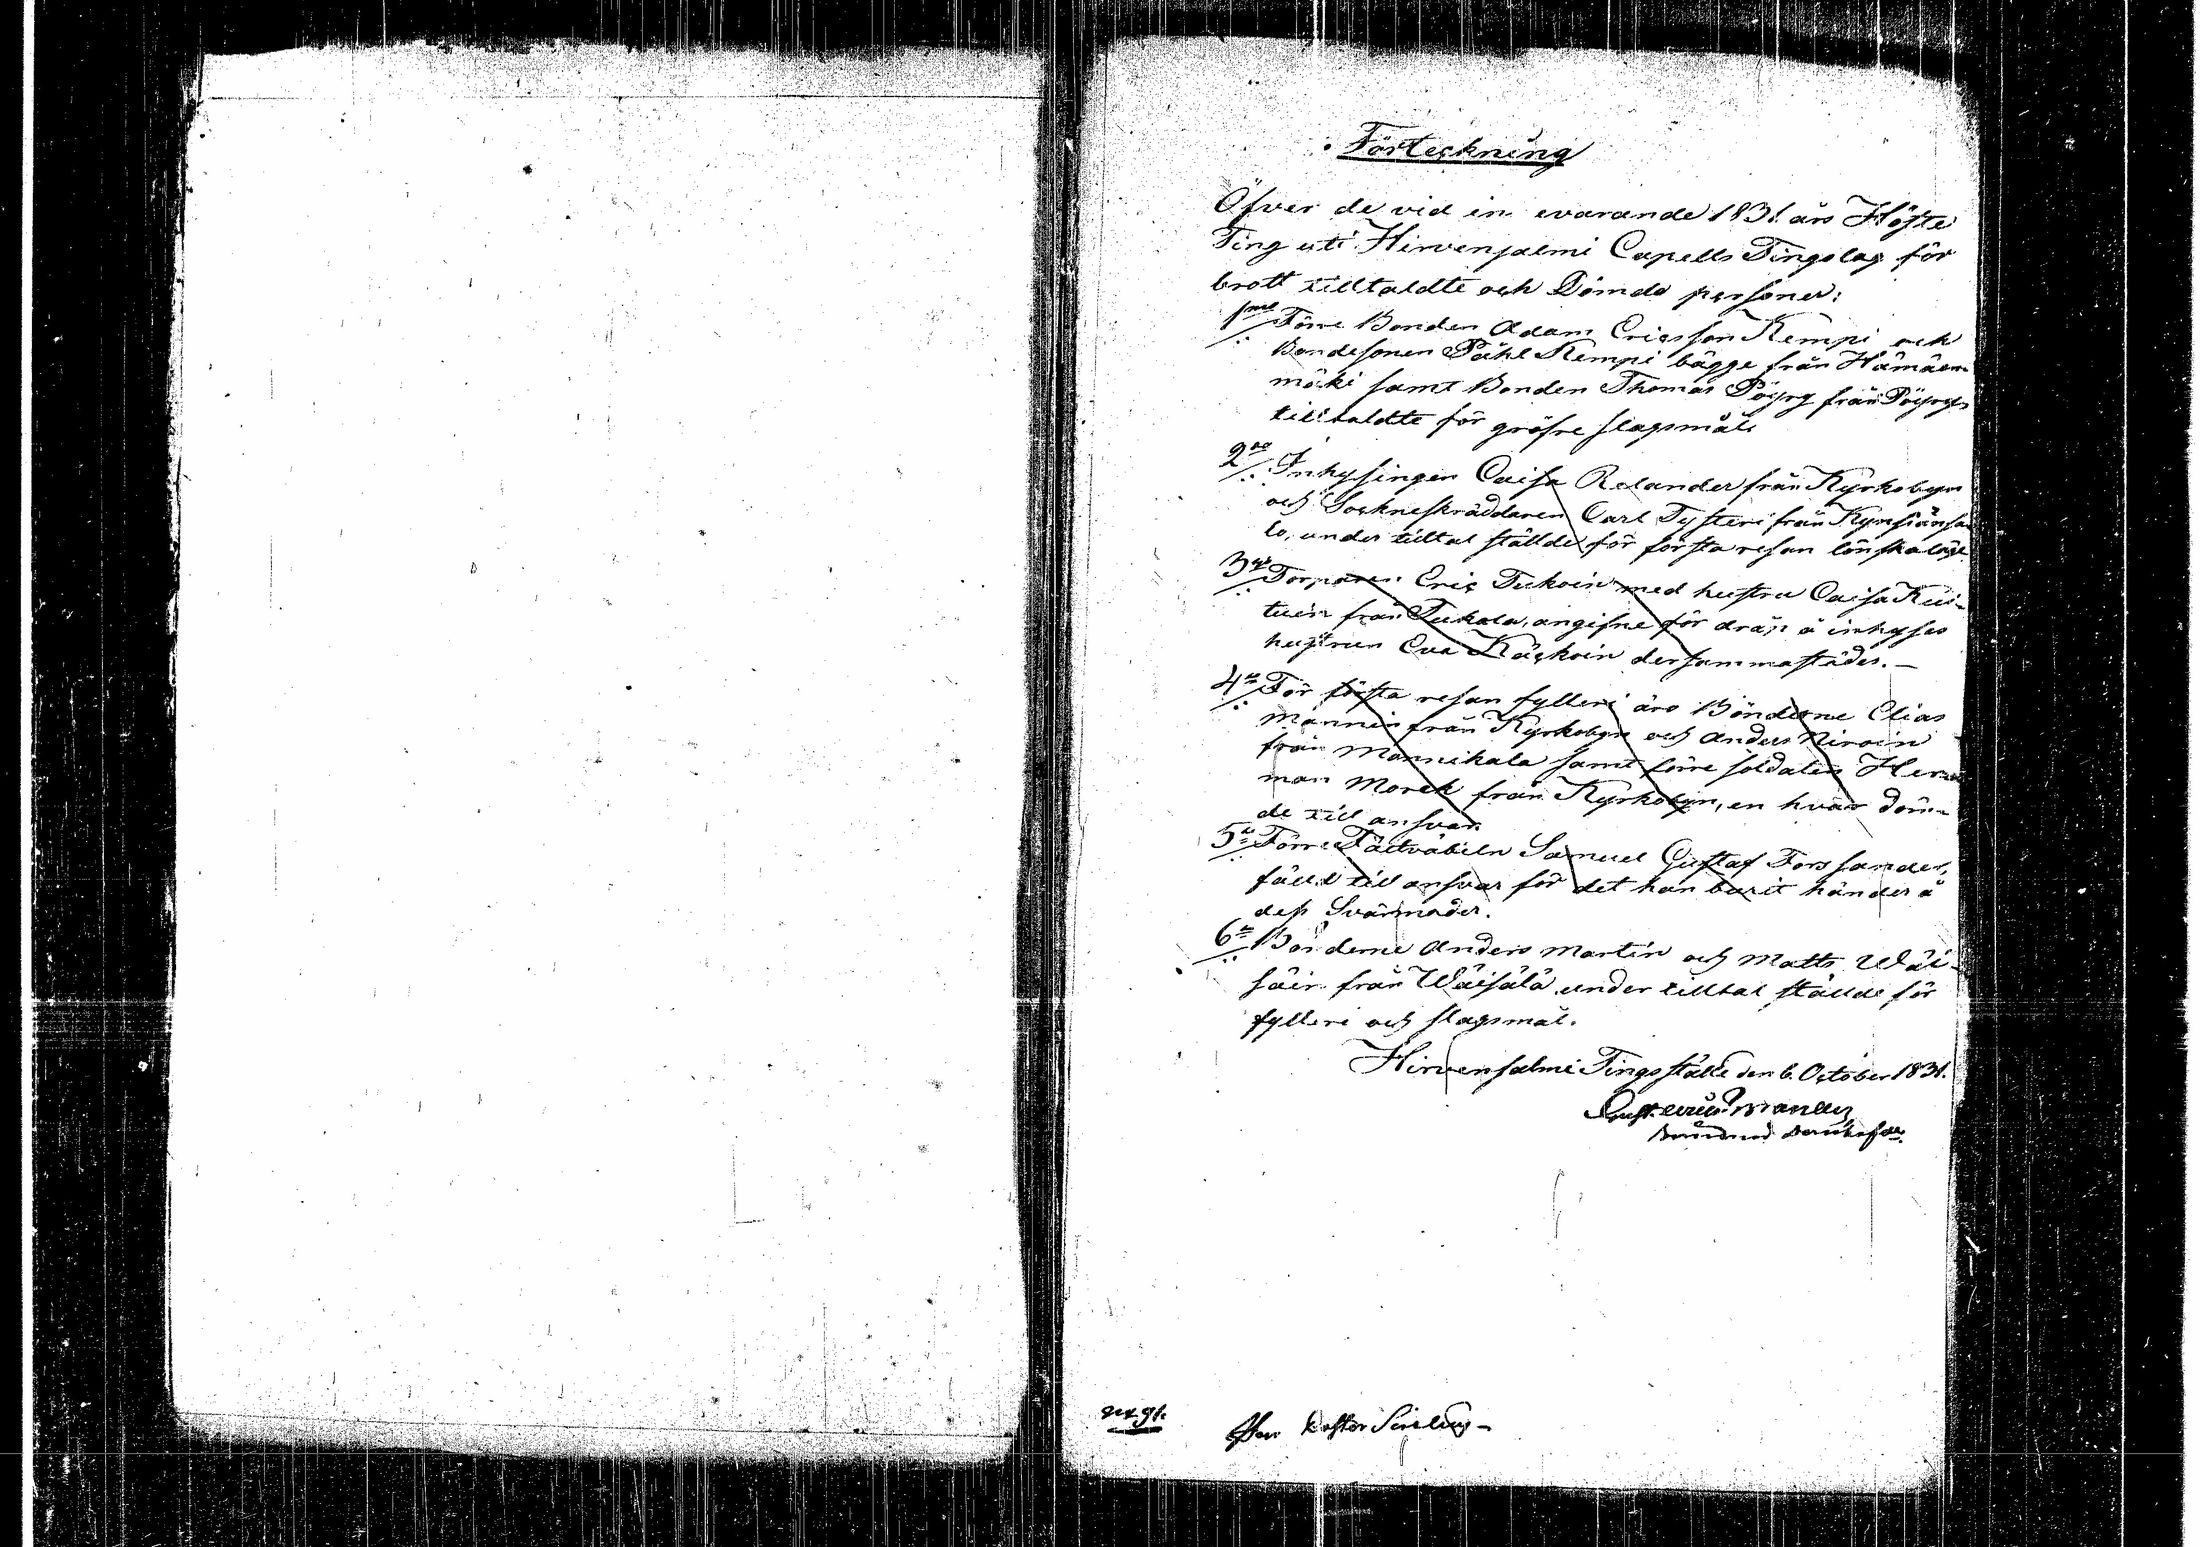 Förteckning
Öfver de vid in evarande 1831 års Höste
Ting uti Hirvensalmi Capells Tingslag för
brott tilltaldte och Dömde personer:
1mo Förre Bonden Adam Ericsson Kempi och
Bondesonen Påhl Kempi bägge från Hämäen
mäki samt Bonden Thomas Pöyry från Pöyry
tilltaldte för gröfre slagsmål.
2do Inhysingen Caisa Relander från Kyrkobyn
och Sockneskräddaren Carl Tysteri från Kynsiänsa
lo, under tilltal stälde för första resan lönskaläge.
3o Torparen Eric Tukoin med hustru Caisa Kui-
tuin från Tukala, angifne för dråp å inhyses
hustrun Eva Käckoin dersammastädes.
4o För första resan fylleri äro Bönderne Elias
Männin från Kyrkobyn och Anders Niroin
från Mannikala samt förre soldaten Her
man Morek från Kyrkobyn, en hvar döm-
de till ansvar.
5o Förre Fältväbeln Samuel Gustaf Forssander,
fälld till ansvar för det han burit händer å
dess Svärmoder.
6o Bönderne Anders Martin och Matts Wäi-
säin från Wäisälä under tilltal stälde för
fylleri och slagsmål.
Hirvensalmi Tingsställe den 6 October 1831.
Gust.
Herr Pastor